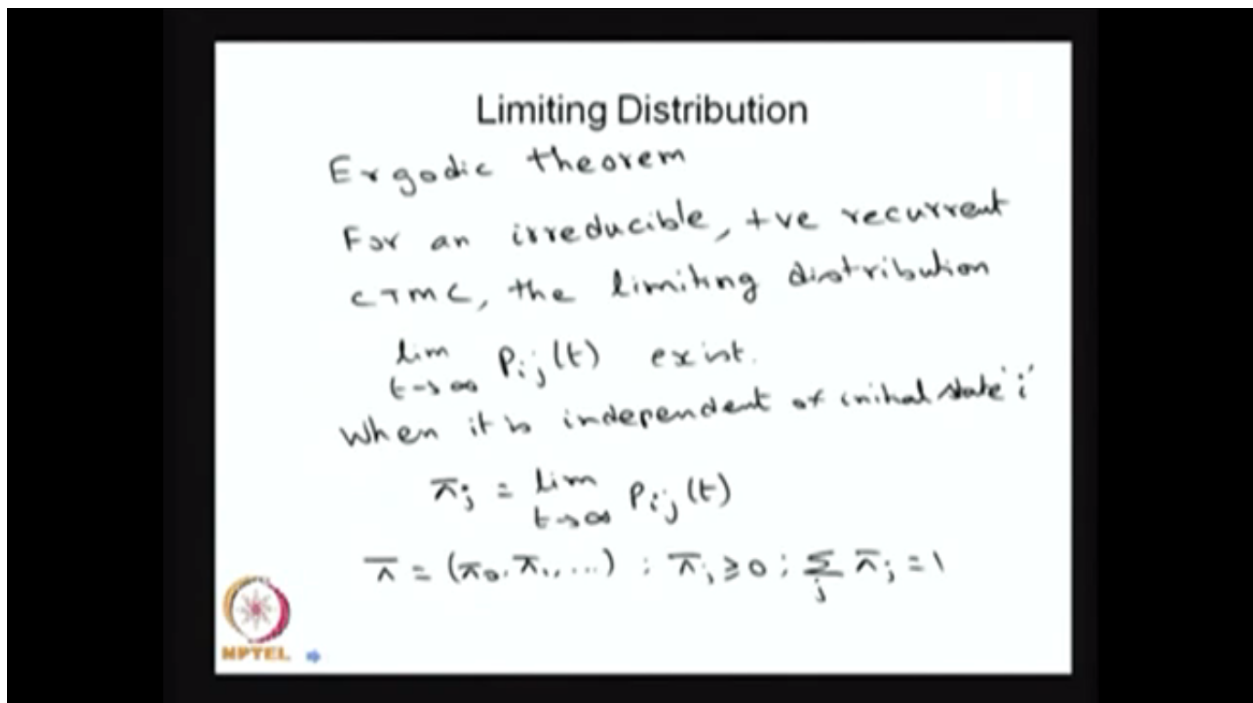 Limiting Distribution
Ergodic theorem
For an irreducible, +ve recurrent
CTMC, the limiting distribution
lim P_{ij}(t) exist.
t→∞
When it is independent of initial state 'i'
π_j = Lim P_{ij}(t)
t→∞
π = (π_0, π_1, ...) ; π_j ≥ 0 ; Σ_j π_j = 1
NPTEL